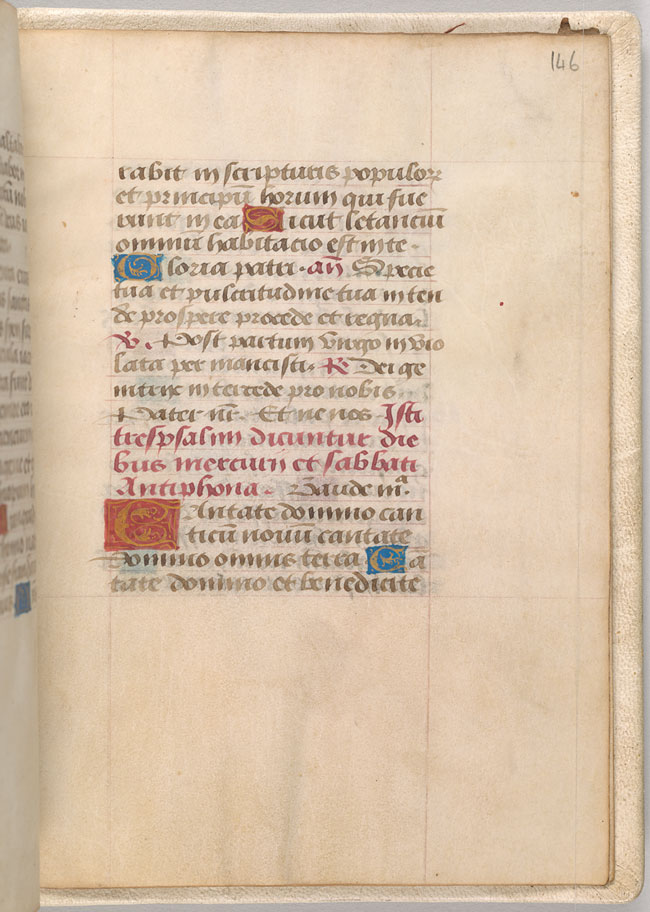 146
rabit in scripturis populorꝝ
et principū horum qui fue
runt in ea Sicut letanciū
omniū habitacio est in te.
Gloria patri. añ Specie
tua et pulcritudine tua inten
de prospere procede et regna.
℣. Post partum virgo in vio
lata permansisti. ℞ Dei ge
nitrix intercede pro nobis
Pater nr̄. Et ne nos Isti
tres psalmi dicuntur die
bus mercurij et sabbati
Antiphona. Gaude mᵃ.
Cantate domino can
ticū novū cantate
domino omnis terra Ca
tate domino et benedicite